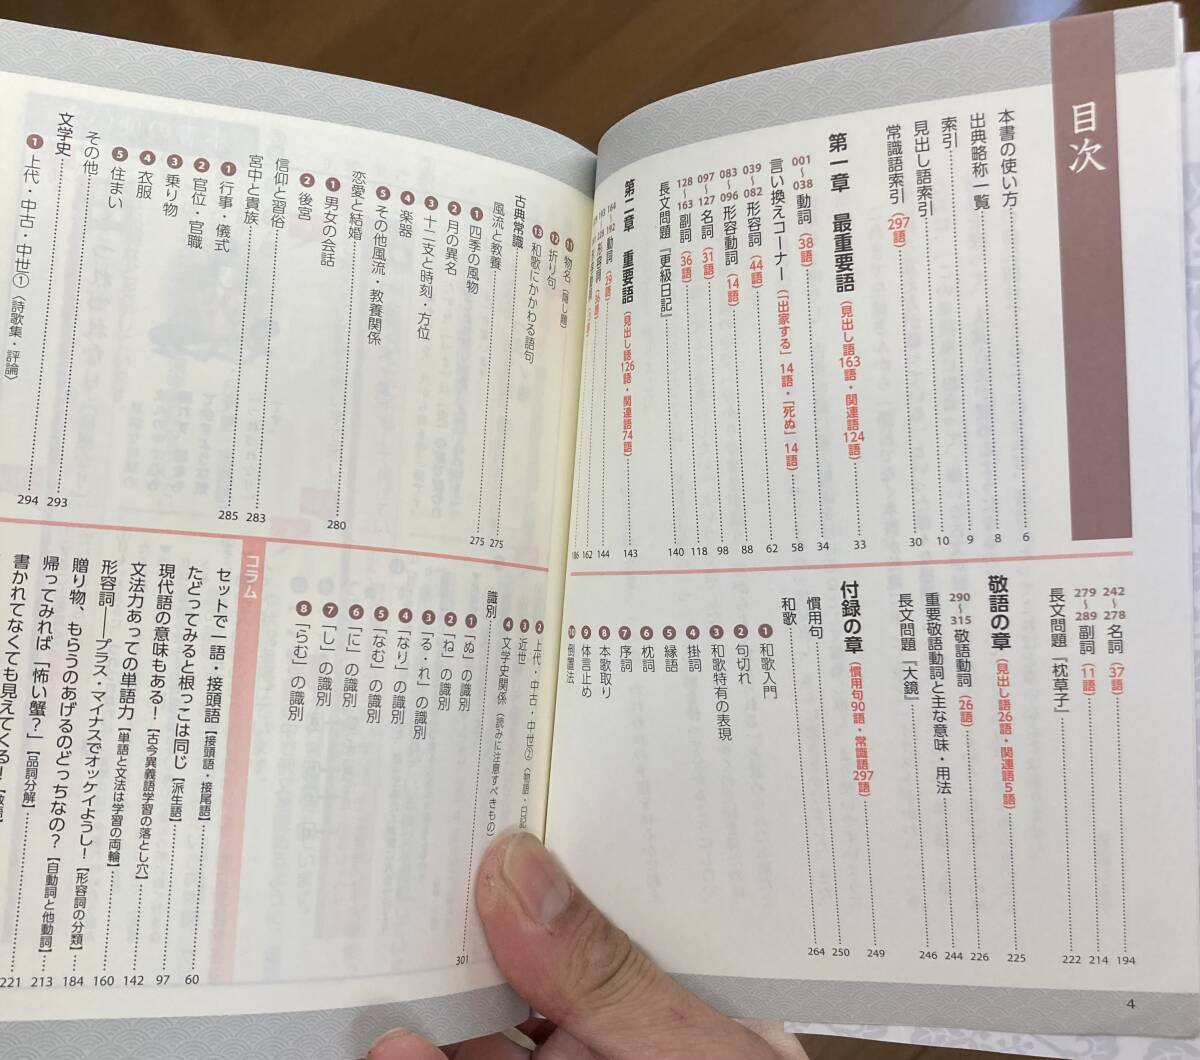 目次
本書の使い方 6
出典略称一覧 8
索引 9
見出し語索引 10
常識語索引（297語） 30
第一章 最重要語（見出し語163語・関連語124語） 33
001～038 動詞（38語） 34
言い換えコーナー（「出家する」14語・「死ぬ」14語） 58
039～082 形容詞（44語） 62
083～096 形容動詞（14語） 88
097～127 名詞（31語） 98
128～163 副詞（36語） 118
長文問題『更級日記』 140
第二章 重要語（見出し語126語・関連語74語） 143
164 192 動詞（29語） 144
193 228 形容詞（36語） 162
186
242～278 名詞（37語） 194
279～289 副詞（11語） 214
長文問題『枕草子』 222
敬語の章（見出し語26語・関連語5語） 225
290～315 敬語動詞（26語） 226
重要敬語動詞と主な意味・用法 244
長文問題『大鏡』 246
付録の章（慣用句90語・常識語297語） 249
慣用句 250
和歌 264
1 和歌入門
2 句切れ
3 和歌特有の表現
4 掛詞
5 縁語
6 枕詞
7 序詞
8 本歌取り
9 体言止め
10 倒置法
4
11 物名（隠し題）
12 折り句
13 和歌にかかわる語句
古典常識 275
風流と教養 275
1 四季の風物
2 月の異名
3 十二支と時刻・方位
4 楽器
5 その他風流・教養関係
恋愛と結婚 280
1 男女の会話
2 後宮
信仰と習俗 283
宮中と貴族 285
1 行事・儀式
2 官位・官職
3 乗り物
4 衣服
5 住まい
その他
文学史 293
1 上代・中古・中世①〈詩歌集・評論〉 294
2 上代・中古・中世②〈物語・日記
3 近世
4 文学史関係（読みに注意すべきもの）
識別 301
1 「ぬ」の識別
2 「ね」の識別
3 「る・れ」の識別
4 「なり」の識別
5 「なむ」の識別
6 「に」の識別
7 「し」の識別
8 「らむ」の識別
コラム
セットで一語・接頭語【接頭語・接尾語】 60
たどってみると根っこは同じ【派生語】 97
現代語の意味もある！【古今異義語学習の落とし穴】 142
文法力あっての単語力【単語と文法は学習の両輪】 160
形容詞――プラス・マイナスでオッケイようし！【形容詞の分類】 184
贈り物、もらうのあげるのどっちなの？【自動詞と他動詞】 213
帰ってみれば「怖い蟹？」【品詞分解】 221
書かれてなくても見えてくる！